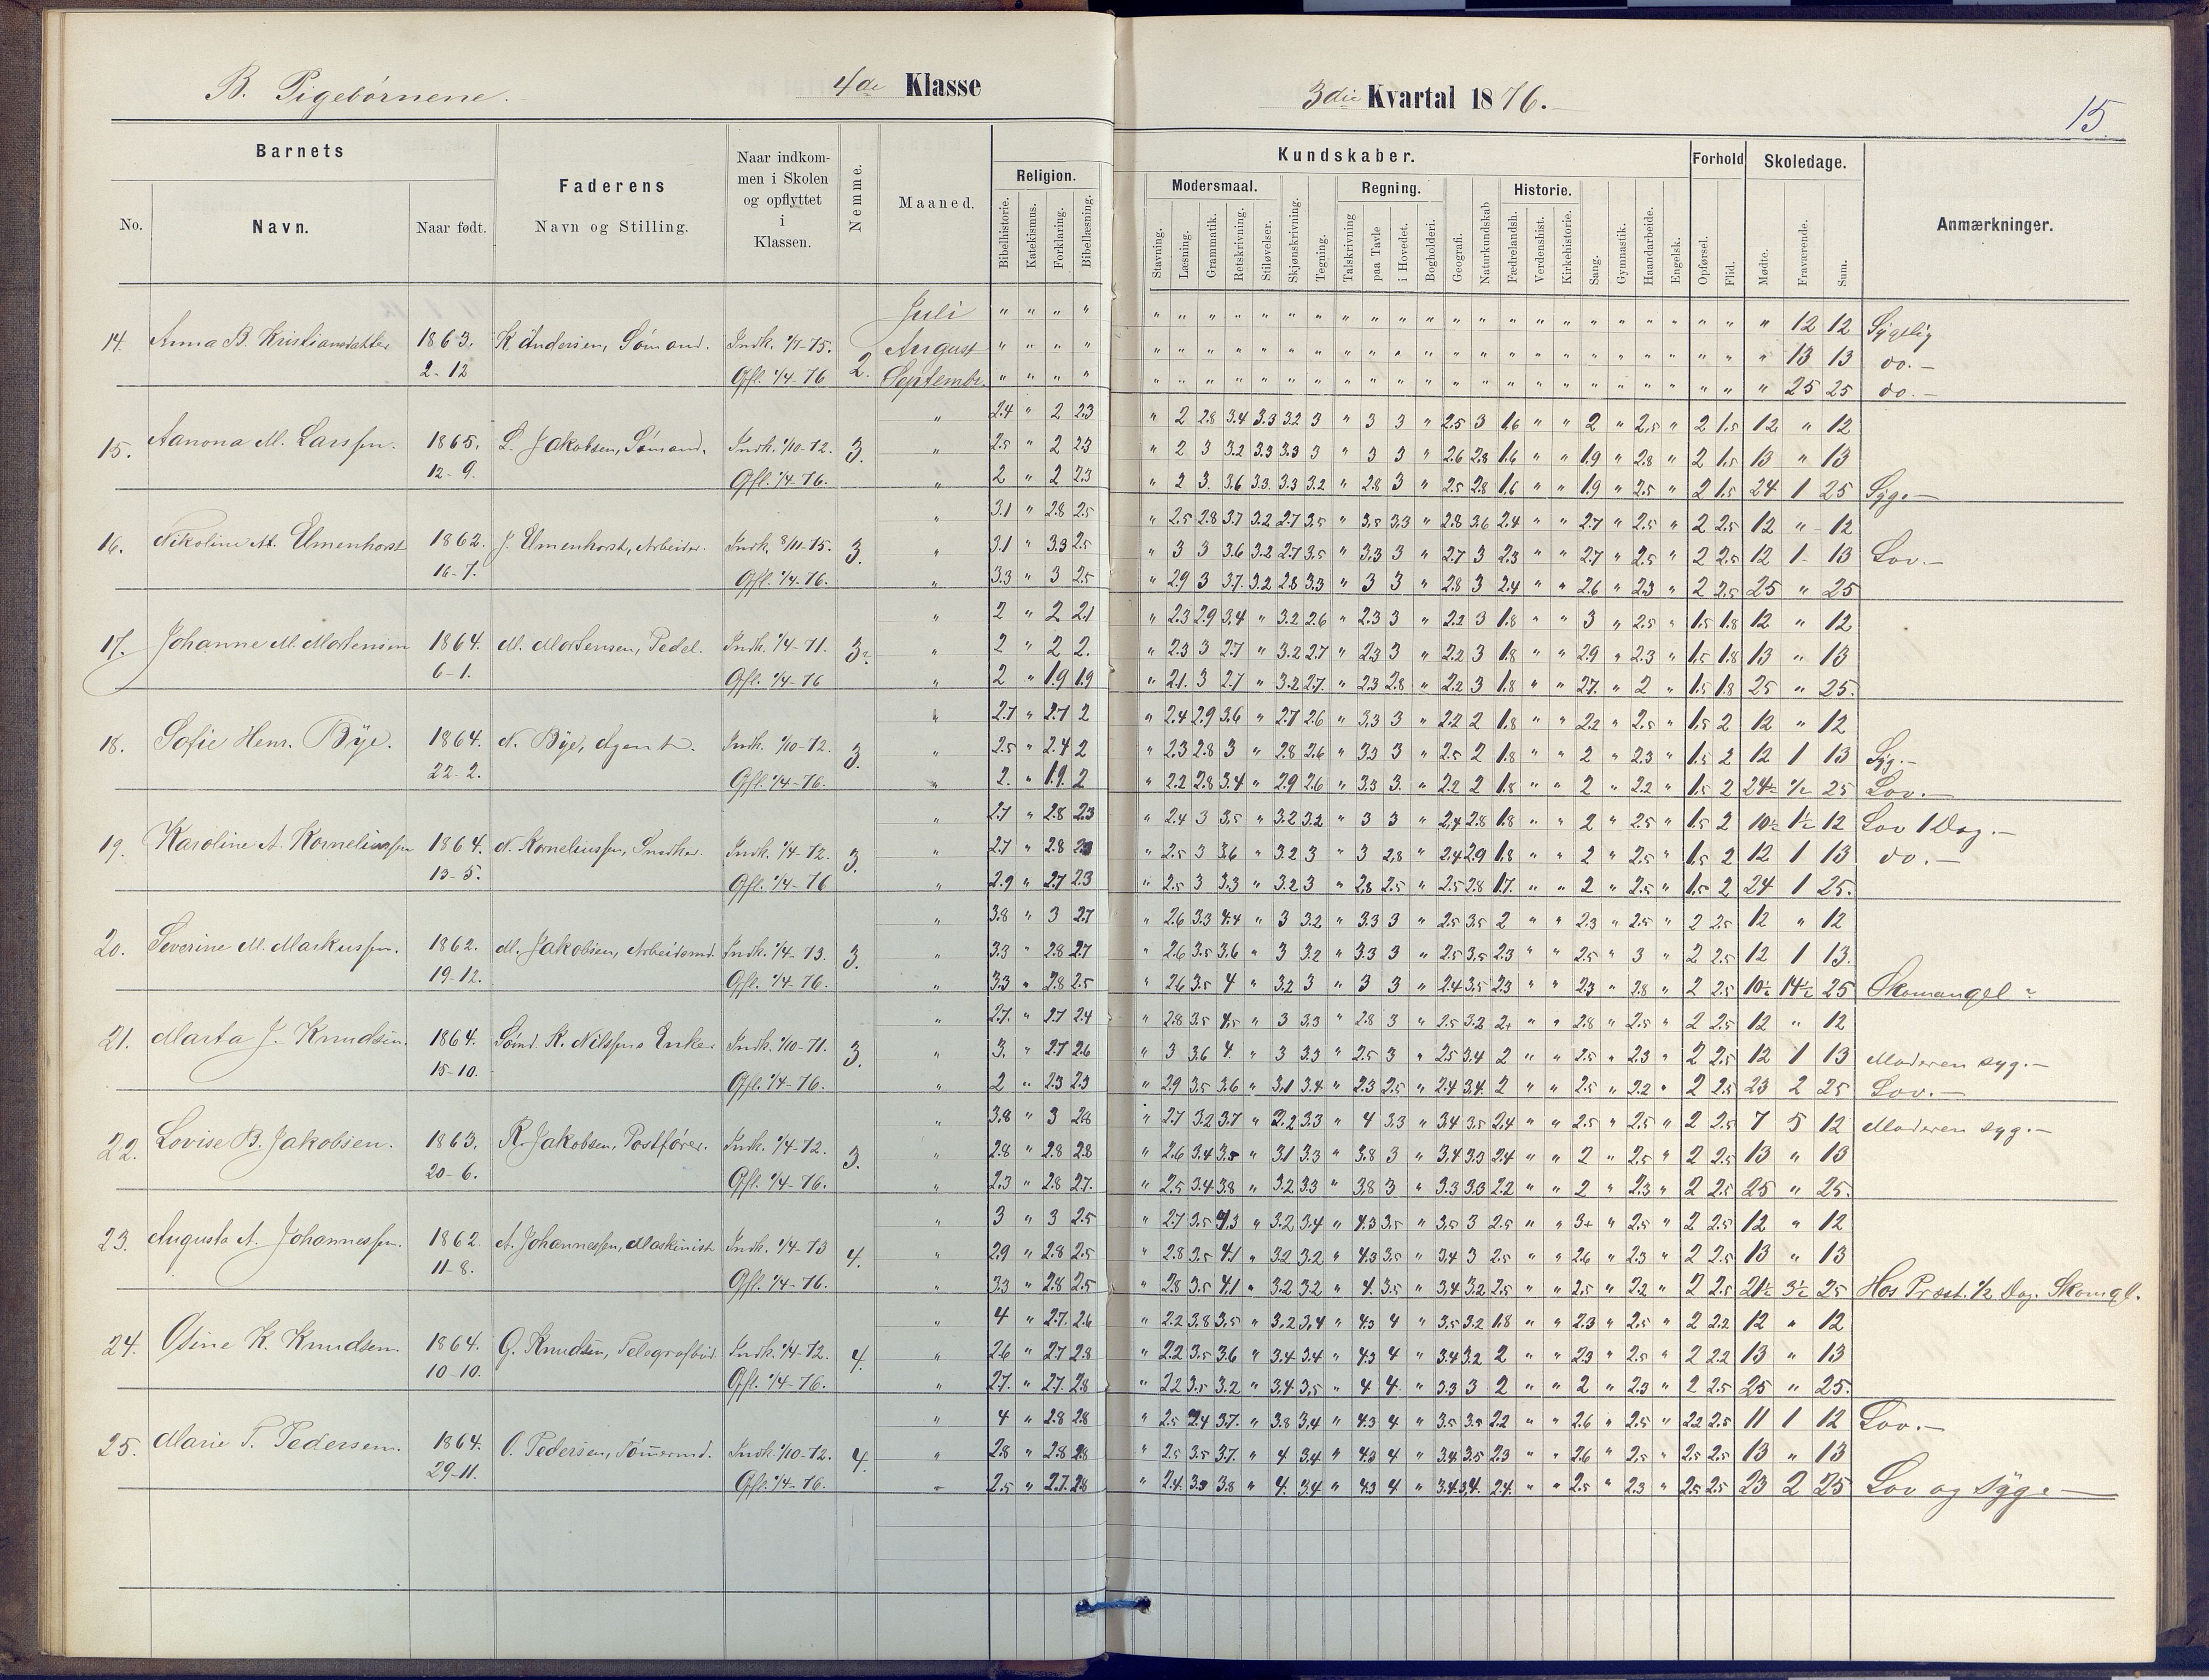 B. Pigebørnene.
4de Klasse
3die Kvartal 1876.
15.
Barnets
No.
Navn.
Naar født.
Faderens
Navn og Stilling.
Naar indkom-
men i Skolen
og opflyttet
i
Klassen.
Nemme.
Maaned.
Religion.
Bibelhistorie.
Katekismus.
Forklaring.
Bibellæsning.
Kundskaber.
Modersmaal.
Stavning.
Læsning.
Grammatik.
Retskrivning.
Stiløvelser.
Skjønskrivning.
Tegning.
Regning.
Talskrivning
paa Tavle
i Hovedet.
Bogholderi.
Geografi.
Naturkundskab
Historie.
Fædrelandsh.
Verdenshist.
Kirkehistorie.
Sang.
Gymnastik.
Haandarbeide.
Engelsk.
Forhold
Opførsel.
Flid.
Skoledage.
Mødte.
Fraværende.
Sum.
Anmærkninger.
14. Anna B. Kristiansdatter 1863. K. Andersen, Sømand. 2.
2-12
Juli " " " " 12 12 Sygelig
August " " " " 13 13 do.
Septembr. " " " " 25 25 do.
15. Aanona M. Larssen. 1865. L. Jakobsen, Sømand. Indk. 1/10-72. 3.
12-9. Opfl. 1/4-76.
2.4 " 2 2.3 " 2 2.8 3.4 3.3 3.2 3 " 3 3 " 2.5 3 1.6 " " 2 " 2.5 " 2 1.5 12 " 12
2.5 " 2 2.3 " 2 3 3.2 3.3 3.3 3 " 3 3 " 2.6 2.8 1.6 " " 1.9 " 2.8 " 2 1.5 13 " 13
2 " 2 2.3 " 2 3 3.6 3.3 3.3 3.2 " 2.8 3 " 2.5 2.8 1.6 " " 1.9 " 2.5 " 2 1.5 24 1 25 Syg.
16. Nikoline M. Elmenhorst 1862. J. Elmenhorst, Arbeider. Indk. 8/11-75. 3.
16-7. Opfl. 1/4-76.
3.1 " 2.8 2.5 " 2.5 2.8 3.7 3.2 2.7 3.5 " 3.5 3.3 " 2.8 3.6 2.4 " " 2.7 " 2.5 " 2 2.5 12 " 12
3.1 " 3.3 2.5 " 3 3 3.6 3.2 2.7 3.5 " 3.3 3 " 2.7 3 2.3 " " 2.7 " 2.5 " 2 2.5 12 1 13 Lov.
3.3 " 3 2.5 " 2.9 3 3.7 3.2 2.8 3.3 " 3 3 " 2.8 3 2.4 " " 2.6 " 2.3 " 2 2.5 25 " 25
17. Johanne M. Mortensen 1864. M. Mortensen, Pedel. Indk. 1/4-71. 3.
6-1. Opfl. 1/4-76
2 " 2 2.1 " 2.3 2.9 3.4 " 3.2 2.6 " 2.3 3 " 2.2 3 1.8 " " 3 " 2.5 " 1.5 1.8 12 " 12
2 " 2 2. " 2.3 3 2.7 " 3.2 2.7 " 2.3 3 " 2.2 3 1.8 " " 2.9 " 2.3 " 1.5 1.8 13 " 13
2 " 1.9 1.9 " 2.1 3 2.7 " 3.2 2.7 " 2.3 2.8 " 2.2 3 1.8 " " 2.7 " 2 " 1.5 1.8 25 " 25.
18. Sofie Henr. Bye. 1864. N. Bye, Agent. Indk. 1/10-72. 3.
22-2. Opfl. 1/4-76.
2.7 " 2.7 2 " 2.4 2.9 3.6 " 2.7 2.6 " 3.3 3 " 2.2 2 1.8 " " 2.2 " 2.5 " 1.5 2 12 " 12
2.5 " 2.4 2 " 2.3 2.8 3 " 2.8 2.6 " 3.3 3 " 2.5 2 1.8 " " 2 " 2.3 " 1.5 2 12 1 13 Syg.
2. " 1.9 2 " 2.2 2.8 3.4 " 2.9 2.6 " 3.3 3. " 2.2 2 1.8 " " 2 " 2.2 " 1.5 2 24½ ½ 25 Lov.
19. Karoline A. Korneliussen 1864. N. Korneliussen, Snedker. Indk. 1/4-72. 3.
13-5. Opfl. 1/4-76
2.7 " 2.8 2.3 " 2.4 3 3.5 " 3.2 3.2 " 3 3 " 2.4 2.8 1.8 " " 2 " 2.5 " 1.5 2 10½ 1½ 12 Lov 1 Dag.
2.7 " 2.8 " 2.5 3 3.6 " 3.2 3 " 3 2.8 " 2.4 2.9 1.8 " " 2 " 2.5 " 1.5 2 12 1 13 do.
2.9 " 2.7 2.3 " 2.5 3 3.3 " 3.2 3 " 2.8 2.5 " 2.5 2.8 1.7 " " 2 " 2.5 " 1.5 2 24 1 25.
20. Severine M. Markussen. 1862. M. Jakobsen, Arbeidsmd. Indk. 1/4-73. 3.
19-12. Opfl. 1/4-76.
3.8 " 3 2.7 " 2.6 3.3 4.4 " 3 3.2 " 3.3 3 " 2.5 3.5 2 " " 2.3 " 2.5 " 2 2.5 12 " 12
3.3 " 2.8 2.7 " 2.6 3.5 3.6 " 3 3.2 " 3.3 3 " 2.5 3.5 2.3 " " 2.5 " 3 " 2 2.5 12 1 13.
3.3 " 2.8 2.5 " 2.6 3.5 4 " 3.2 3 " 3 3 " 2.4 3.5 2.3 " " 2.3 " 2.8 " 2 2.5 10½ 14½ 25 Skomangel
21. Marta J. Knudsen. 1864. Sømd. K. Nilssens Enke. Indk. 1/10-71. 3.
15-10. Opfl. 1/4-76.
2.7. " 2.7 2.4 " 2.8 3.5 4.5 " 3 3.3 " 2.8 3 " 2.5 3.2 2+ " " 2.8 " 2.5 " 2 2.5 12 " 12
3. " 2.7 2.6 " 3 3.6 4. " 3 3.3 " 2.5 3 " 2.5 3.4 2 " " 2.5 " 2.3 " 2 2.5 12 1 13 Moderen syg.
2 " 2.3 2.3 " 2.9 3.5 3.6 " 3.1 3.4 " 2.3 2.5 " 2.4 3.4 2 " " 2.5 " 2.2 " 2 2.5 23 2 25 Lov.
22. Lovise B. Jakobsen. 1863. R. Jakobsen, Postfører. Indk. 1/4-72. 3.
20-6. Opfl. 1/4-76.
3.8 " 3 2.8 " 2.7 3.2 3.7 " 2.2 3.3 " 4 3.3 " 3.4 3.5 2.4 " " 2.5 " 2.5 " 2 2.5 7 5 12 Moderen syg.
2.8 " 2.8 2.8 " 2.6 3.4 3.5 " 3.1 3.3 " 3.8 3 " 3.4 3.3 2.4 " " 2 " 2.5 " 2 2.5 13 " 13
2.3 " 2.8 2.7. " 2.5 3.4 3.8 " 3.2 3.3 " 3.8 3 " 3.3 3.3 2.2 " " 2 " 2.3 " 2 2.5 25 " 25.
23. Augusta A. Johannessen. 1862. A. Johannessen, Maskinist Indk. 1/4-73 4.
11-8. Opfl. 1/4-76.
3 " 3 2.5 " 2.7 3.5 4.3 " 3.2 3.4 " 4.3 3.5 " 3.5 3 2.5 " " 3+ " 2.5 " 2 2.5 12 " 12
2.9 " 2.8 2.5 " 2.8 3.5 4.1 " 3.2 3.2 " 4.3 3.5 " 3.4 3 2.5 " " 2.6 " 2.3 " 2 2.5 13 " 13
3.3 " 2.8 2.5 " 2.8 3.5 4.1 " 3.2 3.2 " 4. 3.5 " 3.4 3.2 2.5 " " 2.5 " 2.2 " 2 2.5 21½ 3½ 25 Hos Præst. ½ Dag. Skomgl.
24. Gine K. Knudsen. 1864. G. Knudsen, Telegrafbud. Indk. 1/4-72. 4.
10-10. Opfl. 1/4-76.
4 " 2.7. 2.6 " 2.2 3.8 3.5 " 3.2 3.4 " 4.3 4 " 3.5 3.2 1.8 " " 2.3 " 2.5 " 2 2.2 12 " 12
2.6 " 2.7 2.8 " 2.2 3.5 3.6 " 3.4 3.4 " 4.3 4 " 3.4 3.2 2 " " 2.3 " 2.5 " 2 2.2 13 " 13
2.7. " 2.7. 2.8 " 2.2 3.5 3.2 " 3.4 3.5 " 4 4 " 3.3 3 2 " " 2 " 2.3 " 2 2.5 25 " 25.
25. Marie T. Pedersen. 1864. O. Pedersen, Tømermd. Indk. 1/10-72. 4.
29-11. Opfl. 1/4-76.
4 " 2.8 2.8 " 2.5 3.7. " 3.8 3.4 " 4.3 4 " 3.5 3.5 2.2 " " 2.6 " 2.5 " 2.2 2.5 11 1 12 Lov.
2.8 " 2.8 2.8 " 2.5 3.5 3.7. " 4 3.4 " 4.3 4 " 3.4 3.5 2.3 " " 2.6 " 2.5 " 2.5 2.5 13 " 13
2.5 " 2.7. 2.8 " 2.4. 3.3 3.8 " 4. 3.4 " 4.3 4 " 3.4 3.4. 2.4. " " 2.5 " 2.3 " 2.5 2.5 23 2 25 Lov og Syg.